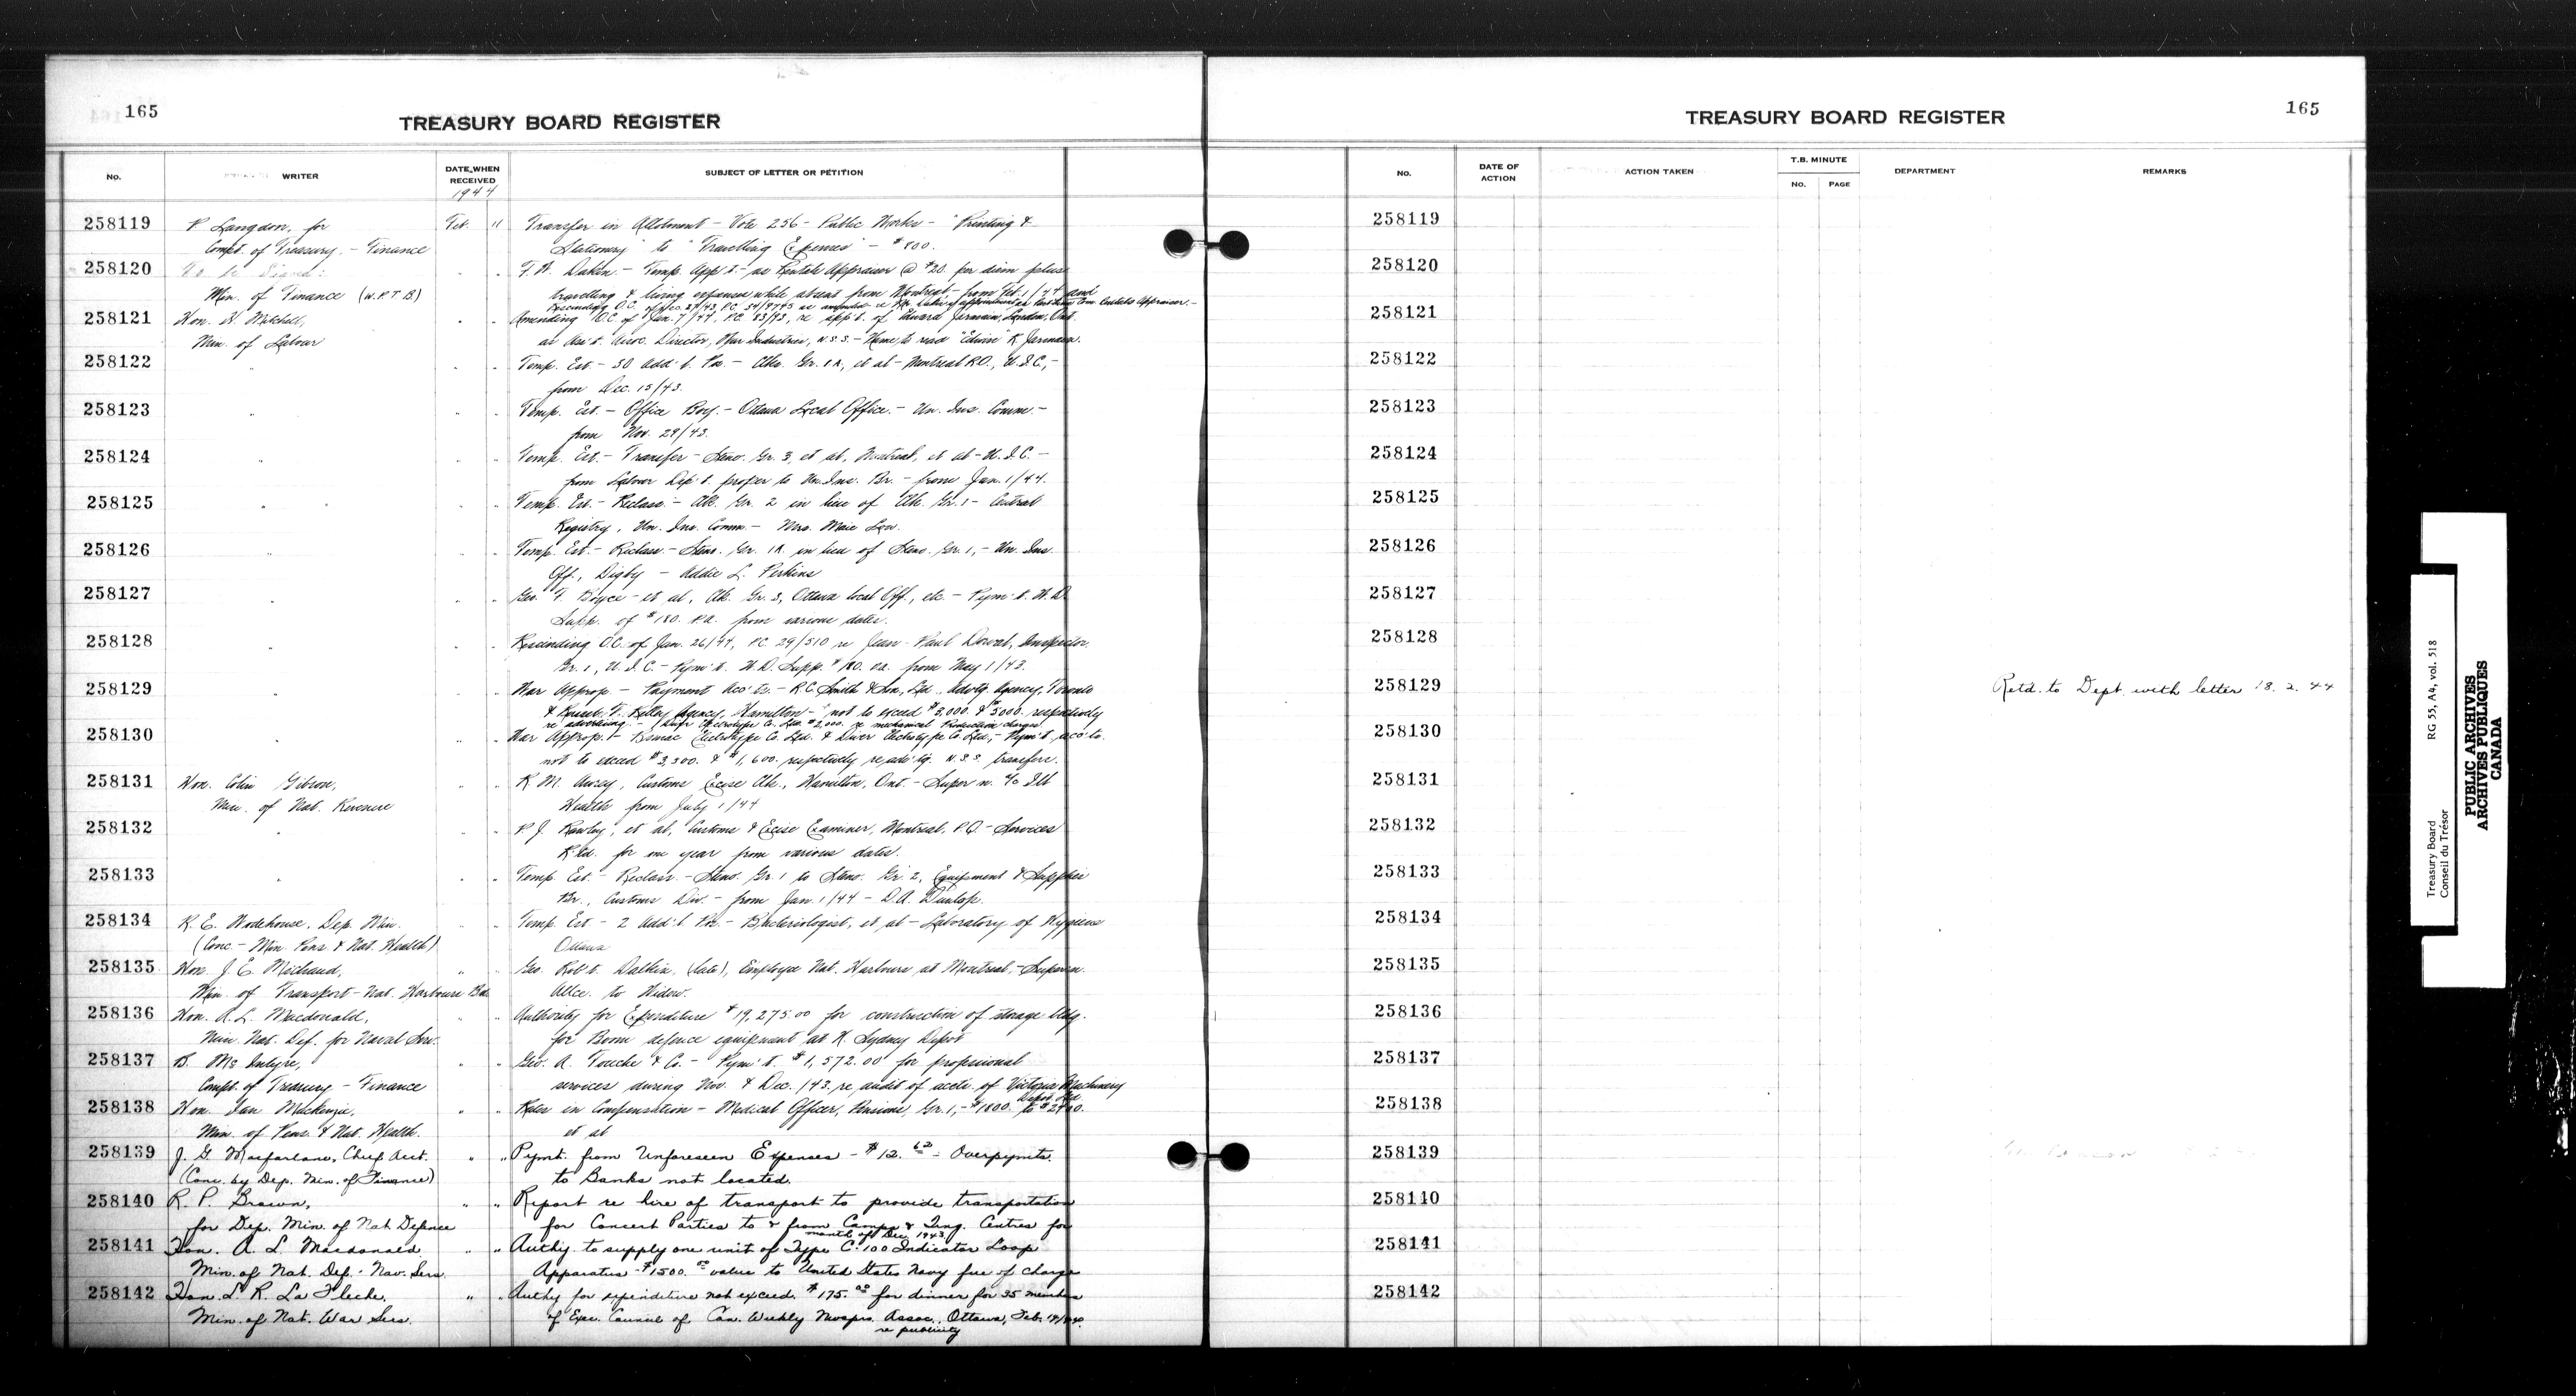 165
TREASURY BOARD REGISTER
No.
WRITER
DATE WHEN RECEIVED
1944
SUBJECT OF LETTER OR PETITION
258119 P Langdon, for Feb. 11 Transfer in Allotment – Vote 256 – Public Works – "Printing &
Compt. of Treasury. – Finance Stationery" to "Travelling Expenses" – $800.
258120 " " Temp. App't. – as Rentals Appraiser @ $20. per diem plus
Min. of Finance (W.P.T.B.) travelling & living expenses while absent from Montreal – from Feb. 1/44 and
258121 Hon. H. Mitchell, " " Amending O.C. of Jan. 7/44, P.C. 83/93, re app't. of Edward Jarmain, London, Ont.
Min. of Labour as Ass't. Assoc. Director, N.S.S. – Name to read "Edwin" R. Jarmain.
258122 " " " Temp. Est. – 30 Add'l. Pos. – Clks. Gr. 1A, et al – Montreal R.O., U.I.C., –
from Dec. 15/43.
258123 " " " Temp. Est. – Office Boy. – Ottawa Local Office. – Un. Ins. Comm. –
from Nov. 29/43.
258124 " " " Temp. Est. – Transfer – Steno. Gr. 3, et al, Montreal, et al – U.I.C. –
from Labour Dep't. proper to Un. Ins. Br. – from Jan. 1/44.
258125 " " " Temp. Est. – Reclass. – Clk. Gr. 2 in lieu of Clk. Gr. 1 – Central
Registry, Un. Ins. Comm. – Mrs. Low.
258126 " " " Temp. Est. – Reclass – Steno. Gr. 1A in lieu of Steno. Gr. 1, – Un. Ins.
Off., Digby – Addie L. Perkins
258127 " " " Geo. F. Boyce – et al, Clk. Gr. 3, Ottawa local Off., etc – Pym't. W.D.
Supp. of $180. P.A. from various dates.
258128 " " " Rescinding O.C. of Jan. 26/44, P.C. 29/510 re Jean-Paul Inspector
Gr. 1, U.I.C. – Pym't. W.D. Supp. $180. P.A. from May 1/43.
258129 " " " War Approp. – Payment Acc'ts. – R.C. Smith & Son, Ltd., Adv'tg. Agency, Toronto
& Russel T. Kelley Agency, Hamilton – not to exceed $3,000. & $5000. respectively
re advertising – Electrotype Co. Ltd. $2,000. re mechanical Production charges
258130 " " " War Approp. – Electrotype Co. Ltd. & Electrotype Co. Ltd., – Pym't. acc'ts.
not to exceed $3,300. & $1,600. respectively re adv'tg. N.S.S. transfers.
258131 Hon. Colin Gibson, " " R. M. Customs Excise Clk., Hamilton, Ont. – Super'n. a/c Ill
Min. of Nat. Revenue Health from July 1/44
258132 " " " P. J. Rowley, et al, Customs & Excise Examiner, Montreal, P.Q. – Services
R'td. for one year from various dates.
258133 " " " Temp. Est. – Reclass. – Steno. Gr. 1 to Steno. Gr. 2, Equipment & Supplies
Br., Customs Div. – from Jan. 1/44 – D.A. Dunlop.
258134 R. E. Wodehouse, Dep. Min. " " Temp. Est – 2 Add'l. Pos. – Bacteriologist, et al – Laboratory of Hygiene
(Conc. – Min. Pens. & Nat. Health) Ottawa
258135 Hon. J. E. Michaud, " " Geo. Rob't. (late), Employee Nat. Harbours at Montreal, – Superan.
Min. of Transport – Nat. Harbours Bd. Allce. to Widow.
258136 Hon. A. L. Macdonald, " " Authority for Expenditure $19,275.00 for construction of storage bldg.
Min. Nat. Def. for Naval Serv. for Boom defence equipment at N. Sydney Depot
258137 B. McIntyre, " " Geo. A. Touche & Co. – Pym't. $1,572.00 for professional
Compt. of Treasury – Finance services during Nov. & Dec. /43, re audit of accts. of Victoria Machinery
Depot Ltd
258138 Hon. Ian Mackenzie, " " Rates in Compensation – Medical Officer, Pensions, Gr. 1, – $1800. to
Min. of Pens. & Nat. Health. et al
258139 J. G. Macfarlane, Chief Acct. " " Pymt. from Unforeseen Expenses – $12.62 – Overpymts.
(Conc. by Dep. Min. of Finance) to Banks not located.
258140 R. P. Brown, " " Report re hire of transport to provide transportation
for Dep. Min. of Nat. Defence for Concert Parties to & from Camps & Tng. Centres for
month of Dec. 1943.
258141 Hon. A. L. Macdonald " " Auth'y. to supply one unit of Type C.100 Indicator Loop
Min. of Nat. Def. – Nav. Serv. Apparatus – $1500.00 value to United States Navy free of charge
258142 Hon. L. R. La Fleche, " " Auth'y for expenditure not exceed. $175.00 for dinner for 35 members
Min. of Nat. War Serv. of Exec. Council of Can. Weekly Newsprs. Assoc., Ottawa, Feb.
re publicity
TREASURY BOARD REGISTER
165
No.
DATE OF ACTION
ACTION TAKEN
T.B. MINUTE
No.
PAGE
DEPARTMENT
REMARKS
258119
258120
258121
258122
258123
258124
258125
258126
258127
258128
258129 Retd. to Dept. with letter 18.2.44
258130
258131
258132
258133
258134
258135
258136
258137
258138
258139
258140
258141
258142
Treasury Board
Conseil du Trésor
RG 55, A4, vol. 518
PUBLIC ARCHIVES
ARCHIVES PUBLIQUES
CANADA